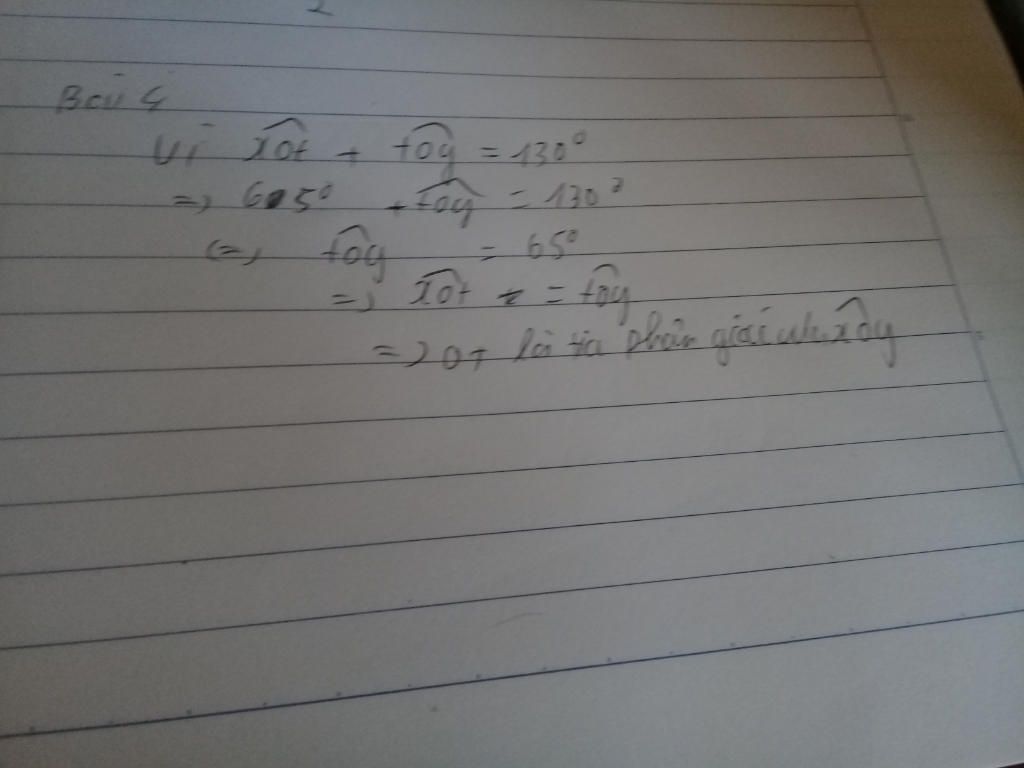 2
Bài 4
Vì xOt + tOy = 130°
=> 65° + tOy = 130°
<=> tOy = 65°
=> xOt = tOy
=> Ot là tia phân giác xOy